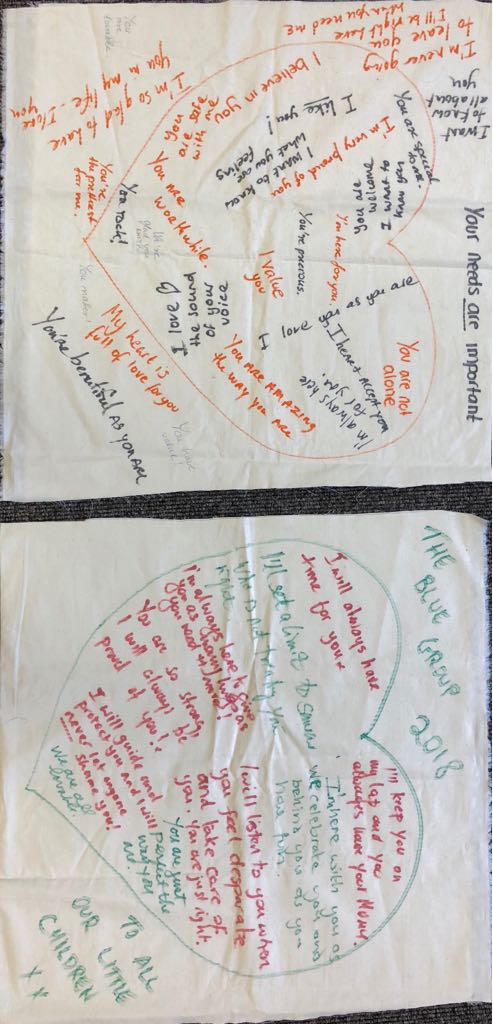 Your needs are important
I want
to know
all about
you
I'm never going
to leave you
I'll be right here
when you need me
You are
lovable
I'm so glad to have
you in my life - I love you
I believe in you
You are
safe
with me
I like you!
I'm very proud of you
I want to know
what you are
feeling
You are special
to me.
I want to
hear you
You are
welcome
I'm here for you.
You're precious.
You are
worthwhile.
You rock!
You're
the prettiest
for me.
You matter!
I value
you
I love
the sound
of your
voice
I love you
as you are
I accept you
You are not
alone
I'm always here
for you.
You are AMAZING
the way you are
My heart is
full of love for you
You're beautiful AS YOU ARE
You have
value!
THE BLUE GROUP 2018
I will always have
time for you x
I'll set a limit to
who is not treating you
right
I'm always here to give
you as many hugs
as you need
You are so strong
I will always be
proud of you!
I will guide and
protect you and I will
never let anyone
shame you!
We are all
lovable.
I'll keep you on
my lap and you
always have your Mummy.
I'm here with you as
we celebrate you and
behind you as you
have fun.
I will listen to you when
you feel desparate
and take care of
you. You are just right.
You are just
perfect the
way you
are
TO ALL
OUR LITTLE
CHILDREN
X X